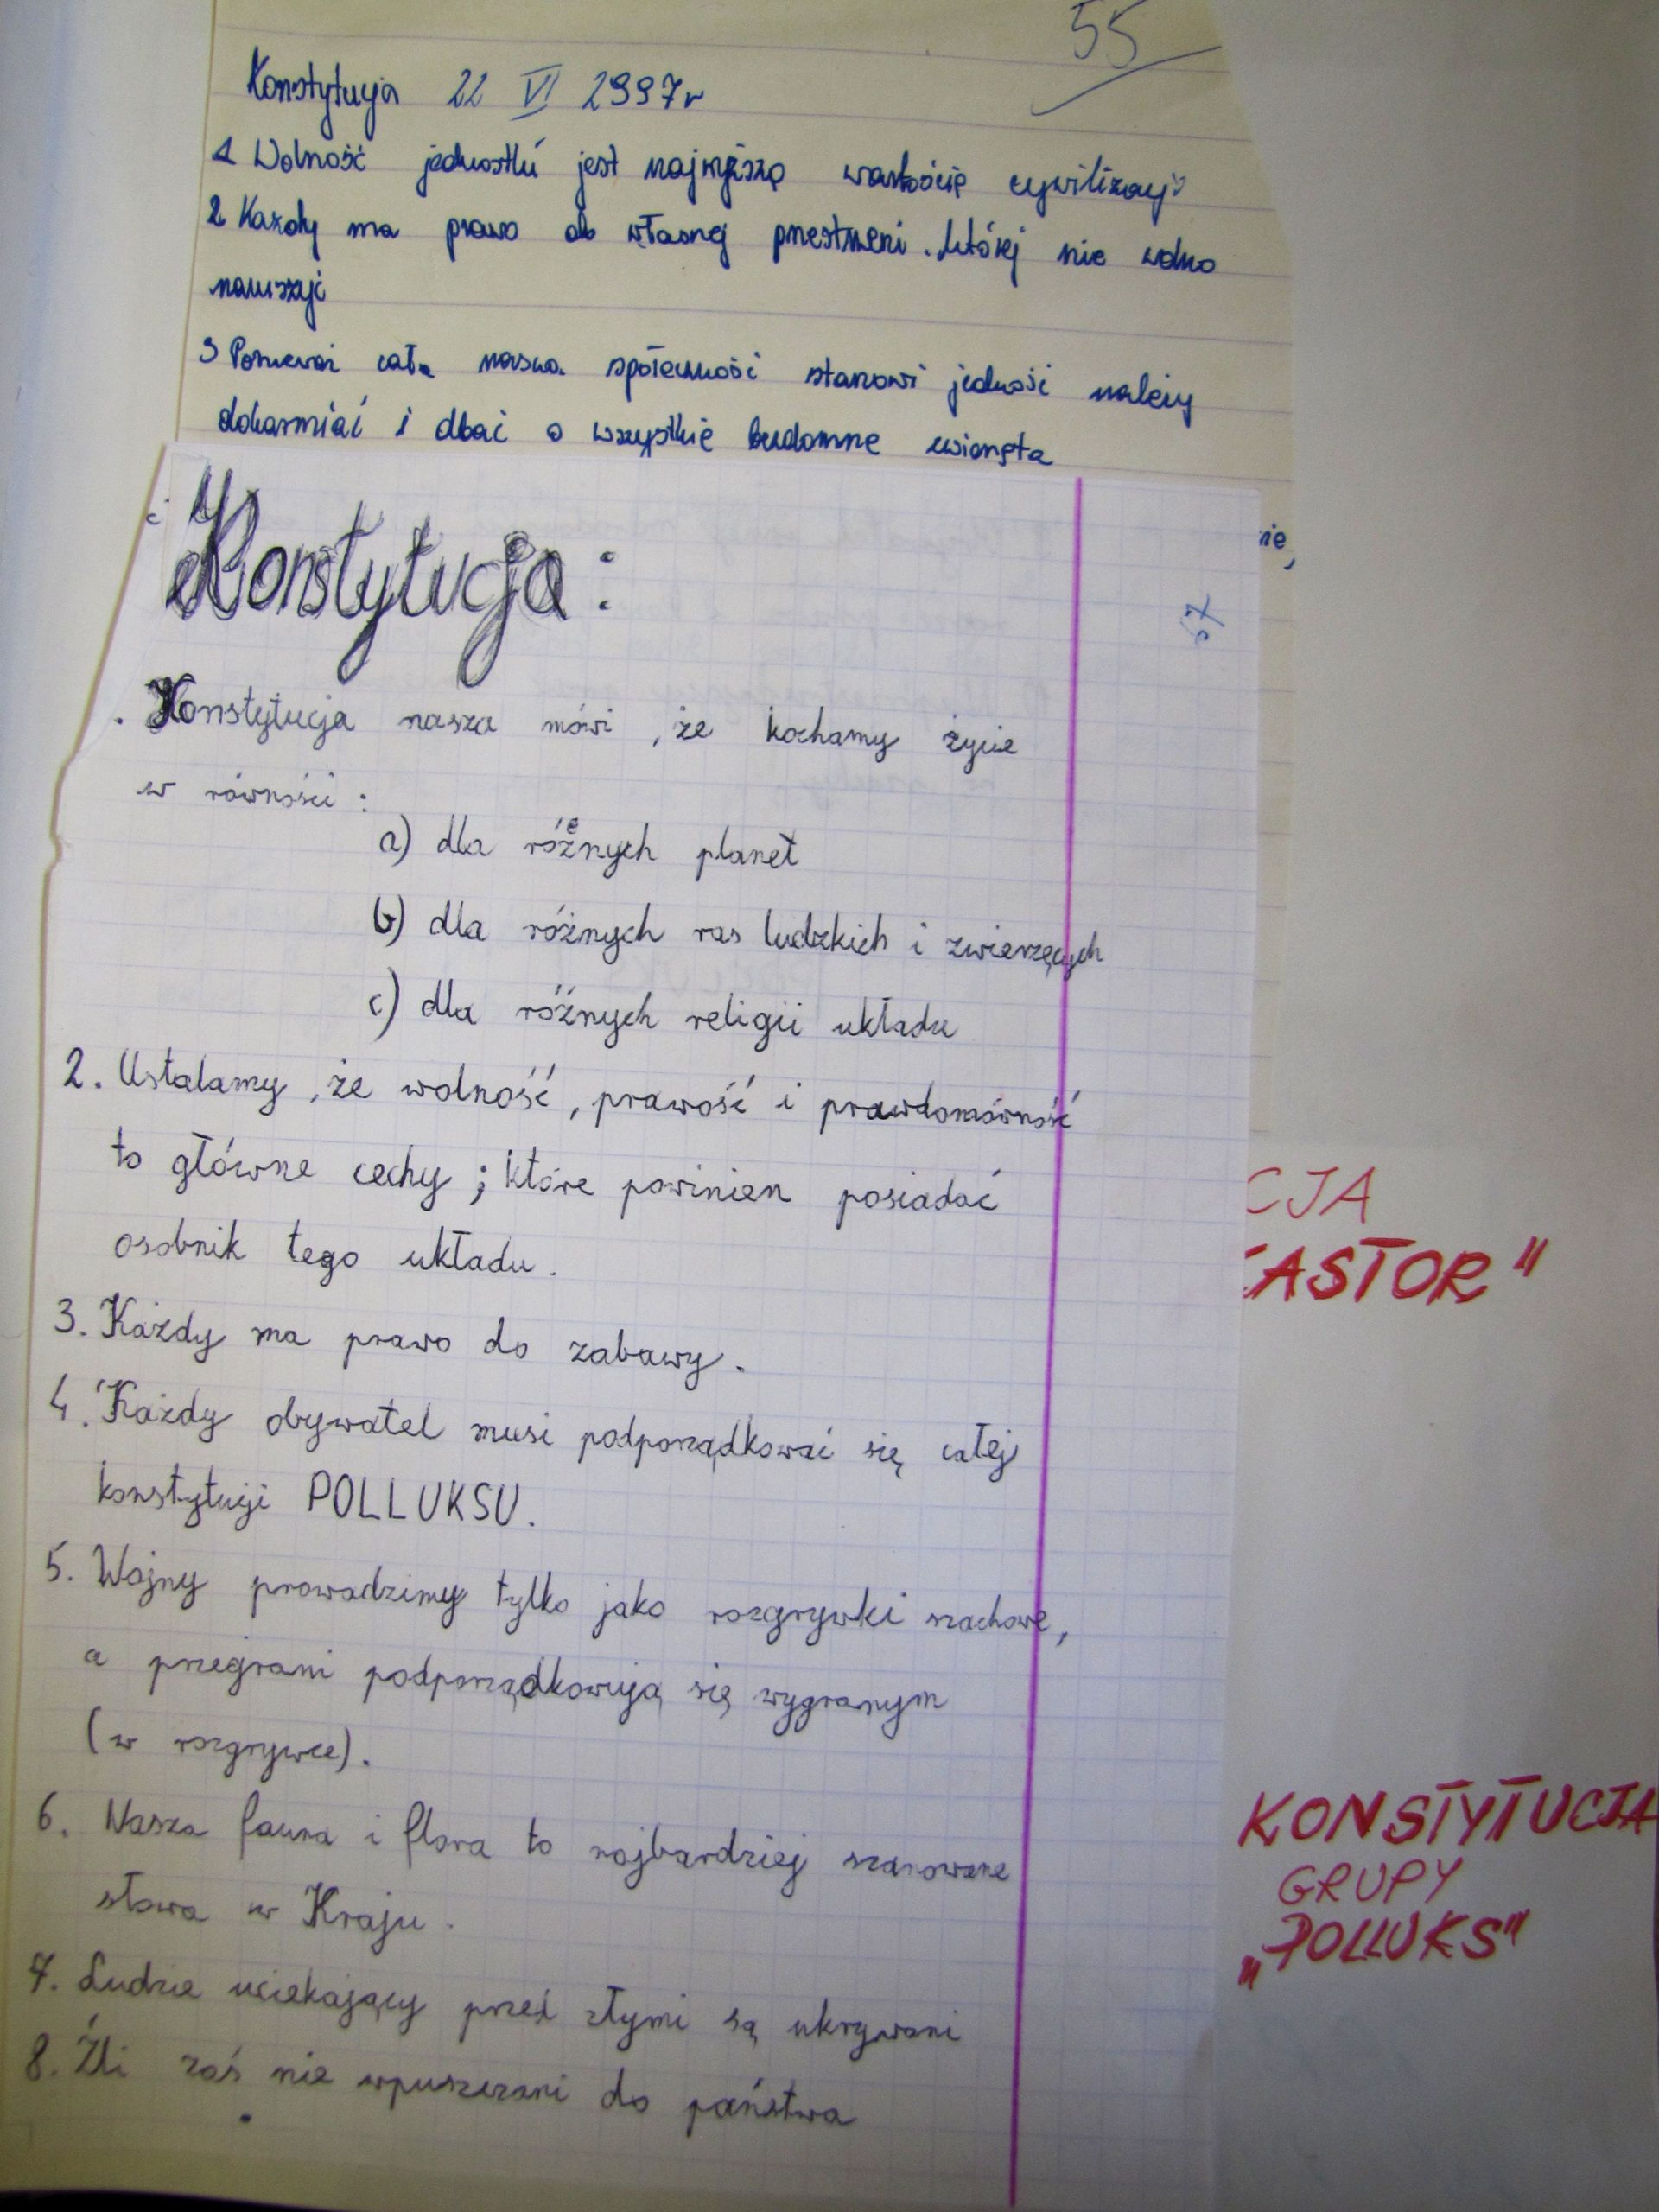 55
Konstytucja 22 VI 2997r
1 Wolność jednostki jest najwyższą wartością cywilizacji
2 Każdy ma prawo do własnej przestrzeni. której nie wolno
naruszyć
3 Ponieważ cała nasza społeczność stanowi jedność należy
dokarmiać i dbać o wszystkie bezdomne zwierzęta
ie,
Konstytucja:
57
. Konstytucja nasza mówi, że kochamy życie
w równości:
a) dla różnych planet
b) dla różnych ras ludzkich i zwierzęcych
c) dla różnych religii układu
2. Ustalamy, że wolność, prawość i prawdomówność
to główne cechy; które powinien posiadać
osobnik tego układu.
3. Każdy ma prawo do zabawy.
4. Każdy obywatel musi podporządkować się całej
konstytucji POLLUKSU.
5. Wojny prowadzimy tylko jako rozgrywki szachowe,
a przegrani podporządkowują się wygranym
(w rozgrywce).
6. Nasza fauna i flora to najbardziej szanowane
słowa w Kraju.
7. Ludzie uciekający przed złymi są ukrywani
8. Źli zaś nie wpuszczani do państwa
CJA
KASTOR"
KONSTYTUCJA
GRUPY
„POLLUKS"